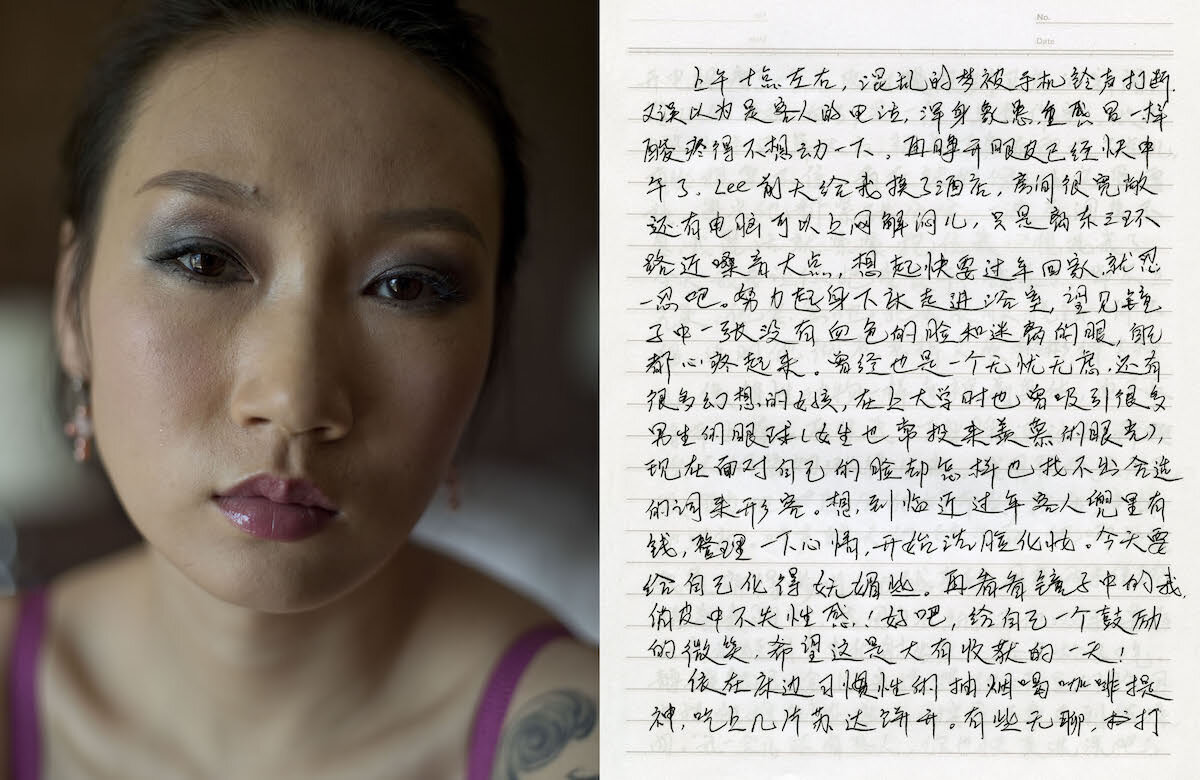 No.
Date
上午十点左右，混乱的梦被手机铃声打断，
又误以为是客人的电话，浑身象患重感冒一样
酸疼得不想动一下。再睁开眼皮已经快中
午了。Lee前天给我换了酒店，房间很宽敞
还有电脑可以上网解闷儿，只是离东三环
路近噪音大点，想起快要过年回家，就忍
一忍吧。努力起身下床走进浴室，望见镜
子中一张没有血色的脸和迷离的眼，自己
都心疼起来。曾经也是一个无忧无虑，还有
很多幻想的女孩，在上大学时也曾吸引很多
男生的眼球（女生也常投来羡慕的眼光），
现在面对自己的脸却怎样也找不出合适
的词来形容。想到临近过年客人兜里有
钱，整理一下心情，开始洗脸化妆。今天要
给自己化得妩媚些。再看看镜子中的我，
俏皮中不失性感！好吧，给自己一个鼓励
的微笑，希望这是大有收获的一天！
依在床边习惯性的抽烟喝咖啡提
神，吃上几片苏达饼干。有些无聊，打